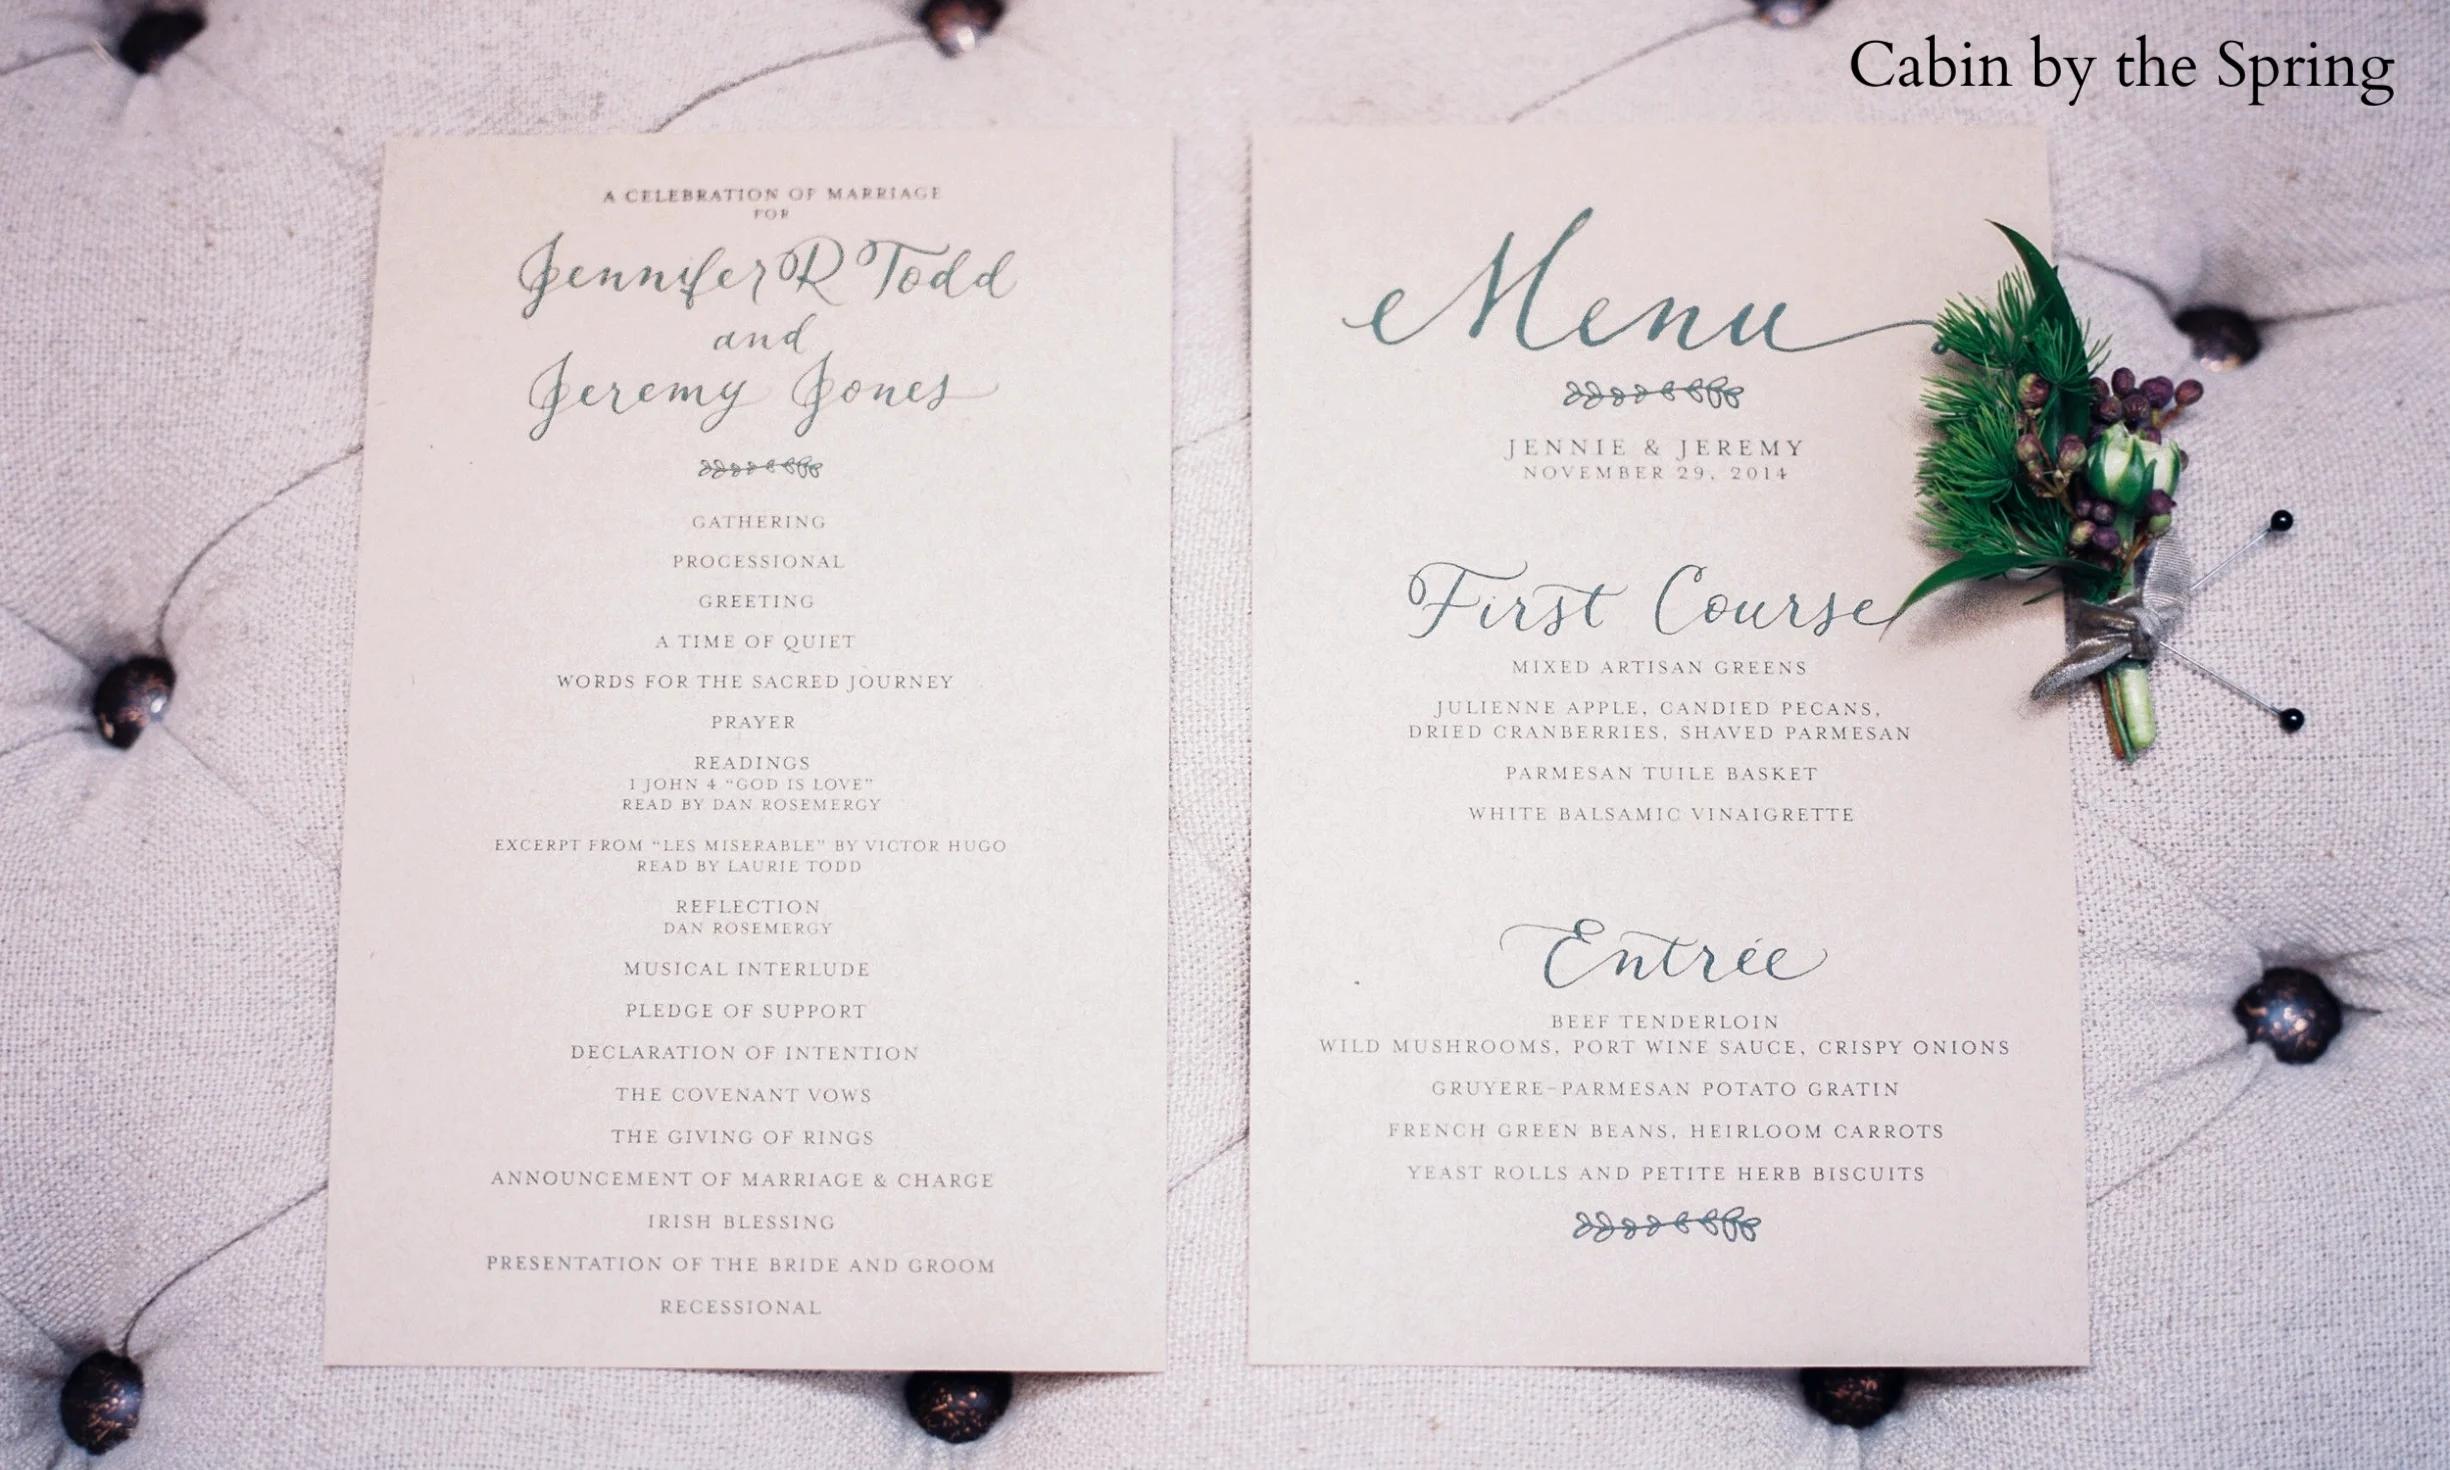 Cabin by the Spring
A CELEBRATION OF MARRIAGE
FOR
Jennifer R Todd
and
Jeremy Jones
GATHERING
PROCESSIONAL
GREETING
A TIME OF QUIET
WORDS FOR THE SACRED JOURNEY
PRAYER
READINGS
1 JOHN 4 “GOD IS LOVE”
READ BY DAN ROSEMERGY
EXCERPT FROM “LES MISERABLE” BY VICTOR HUGO
READ BY LAURIE TODD
REFLECTION
DAN ROSEMERGY
MUSICAL INTERLUDE
PLEDGE OF SUPPORT
DECLARATION OF INTENTION
THE COVENANT VOWS
THE GIVING OF RINGS
ANNOUNCEMENT OF MARRIAGE & CHARGE
IRISH BLESSING
PRESENTATION OF THE BRIDE AND GROOM
RECESSIONAL
Menu
JENNIE & JEREMY
NOVEMBER 29, 2014
First Course
MIXED ARTISAN GREENS
JULIENNE APPLE, CANDIED PECANS,
DRIED CRANBERRIES, SHAVED PARMESAN
PARMESAN TUILE BASKET
WHITE BALSAMIC VINAIGRETTE
Entrée
BEEF TENDERLOIN
WILD MUSHROOMS, PORT WINE SAUCE, CRISPY ONIONS
GRUYERE-PARMESAN POTATO GRATIN
FRENCH GREEN BEANS, HEIRLOOM CARROTS
YEAST ROLLS AND PETITE HERB BISCUITS